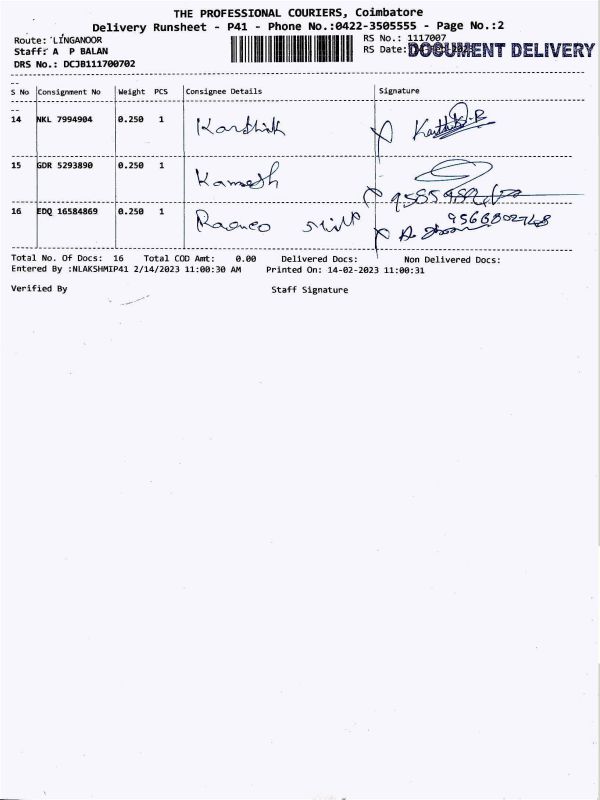 THE PROFESSIONAL COURIERS, Coimbatore
Delivery Runsheet - P41 - Phone No.:0422-3505555 - Page No.:2
Route: LINGANOOR
RS No.: 1117007
Staff: A P BALAN
RS Date:
DOCUMENT DELIVERY
DRS No.: DCJB111700702
S No Consignment No Weight PCS Consignee Details Signature
14 NKL 7994904 0.250 1 Karthik
15 GDR 5293890 0.250 1 Kamesh
16 EDQ 16584869 0.250 1
9566802768
Total No. Of Docs: 16 Total COD Amt: 0.00 Delivered Docs: Non Delivered Docs:
Entered By :NLAKSHMIP41 2/14/2023 11:00:30 AM Printed On: 14-02-2023 11:00:31
Verified By Staff Signature